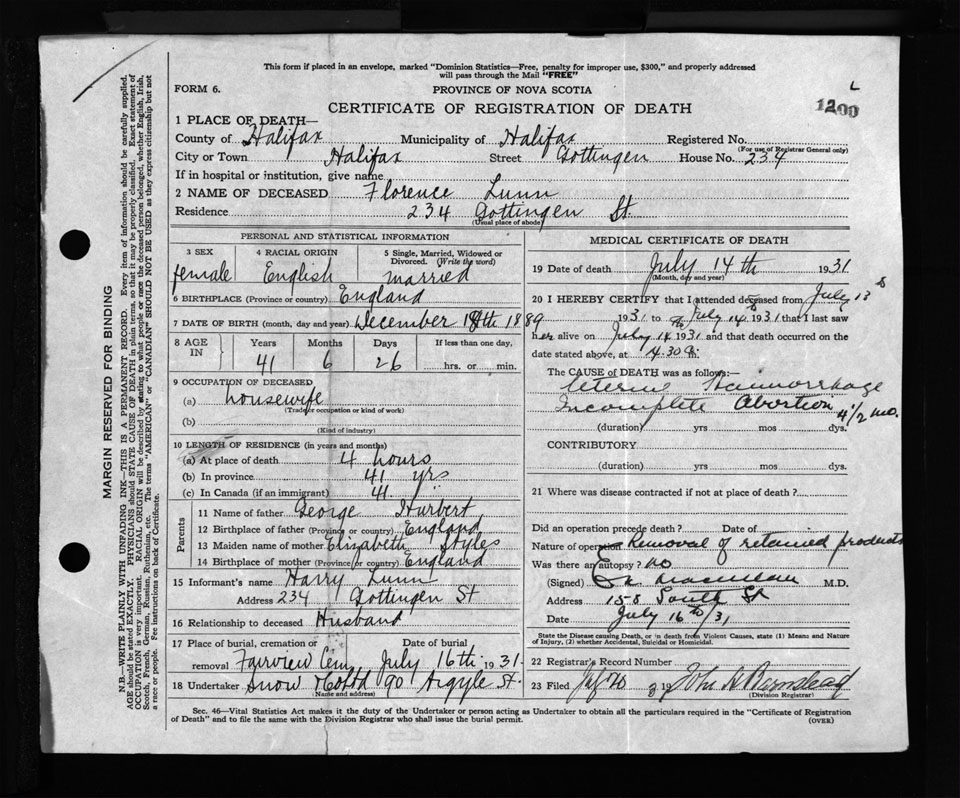 This form if placed in an envelope, marked "Dominion Statistics—Free, penalty for improper use, $300," and properly addressed
will pass through the Mail "FREE"
FORM 6.
PROVINCE OF NOVA SCOTIA
L
1200
CERTIFICATE OF REGISTRATION OF DEATH
1 PLACE OF DEATH—
County of Halifax Municipality of Halifax Registered No.
(For use of Registrar General only)
City or Town Halifax Street Gottingen House No. 234
If in hospital or institution, give name
2 NAME OF DECEASED Florence Lunn
Residence 234 Gottingen St.
(Usual place of abode)
PERSONAL AND STATISTICAL INFORMATION
3 SEX 4 RACIAL ORIGIN 5 Single, Married, Widowed or
Divorced. (Write the word)
female English married
6 BIRTHPLACE (Province or country) England
7 DATE OF BIRTH (month, day and year) December 18th 1889
8 AGE IN Years Months Days If less than one day,
41 6 26 hrs. or min.
9 OCCUPATION OF DECEASED
(a) housewife
(Trade or occupation or kind of work)
(b)
(Kind of industry)
10 LENGTH OF RESIDENCE (in years and months)
(a) At place of death 4 hours
(b) In province 41 yrs
(c) In Canada (if an immigrant) 41 "
Parents
11 Name of father George Hurbert
12 Birthplace of father (Province or country) England
13 Maiden name of mother Elizabeth Styles
14 Birthplace of mother (Province or country) England
15 Informant's name Harry Lunn
Address 234 Gottingen St
16 Relationship to deceased Husband
17 Place of burial, cremation or Date of burial
removal Fairview Cem July 16th 1931
18 Undertaker Snow & Co Ltd 90 Argyle St.
(Name and address)
MEDICAL CERTIFICATE OF DEATH
19 Date of death July 14th 1931
(Month, day and year)
20 I HEREBY CERTIFY that I attended deceased from July 13
1931 to July 14 1931 that I last saw
her alive on July 14 1931 and that death occurred on the
date stated above, at 4.30 m.
The CAUSE of DEATH was as follows:—
Uterine Haemorrhage
Incomplete Abortion 4 1/2 mo.
(duration) yrs mos dys.
CONTRIBUTORY
(duration) yrs mos dys.
21 Where was disease contracted if not at place of death?
Did an operation precede death? Date of
Nature of operation Removal of retained products
Was there an autopsy? no
(Signed) M.D.
Address 158 South St
Date July 16th/31
State the Disease causing Death, or in death from Violent Causes, state (1) Means and Nature
of Injury, (2) whether Accidental, Suicidal or Homicidal.
22 Registrar's Record Number
23 Filed July 20 19 John A Barnstead
(Division Registrar)
Sec. 46—Vital Statistics Act makes it the duty of the Undertaker or person acting as Undertaker to obtain all the particulars required in the "Certificate of Registration
of Death" and to file the same with the Division Registrar who shall issue the burial permit.
(OVER)
MARGIN RESERVED FOR BINDING
N.B.—WRITE PLAINLY WITH UNFADING INK—THIS IS A PERMANENT RECORD. Every item of information should be carefully supplied.
AGE should be stated EXACTLY. PHYSICIANS should STATE CAUSE OF DEATH in plain terms, so that it may be properly classified. Exact statement of
OCCUPATION is very important. RACIAL ORIGIN will be described by stating to what people or race the deceased person belonged, whether English, Irish,
Scotch, French, German, Russian, Ruthenian, etc. The terms "AMERICAN" or "CANADIAN" SHOULD NOT BE USED as they express citizenship but not
a race or people. See instructions on back of Certificate.